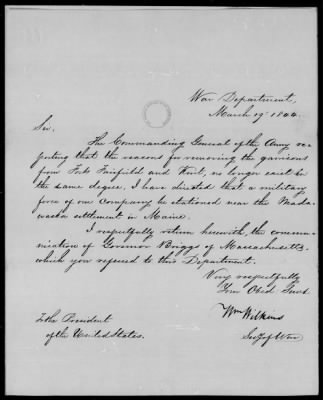 War Department,
March 19th 1844.
Sir,
The Commanding General of the Army re-
porting that the reasons for removing the garrisons
from Forts Fairfield and Kent, no longer exist in
the same degree, I have directed that a military
force of one Company be stationed near the Mada-
waska settlement in Maine.
I respectfully return herewith, the commu-
nication of Governor Briggs of Massachusetts
which you referred to this Department.
Very respectfully
Your Obed Servt
Wm Wilkins
Secy of War
To the President
of the United States.